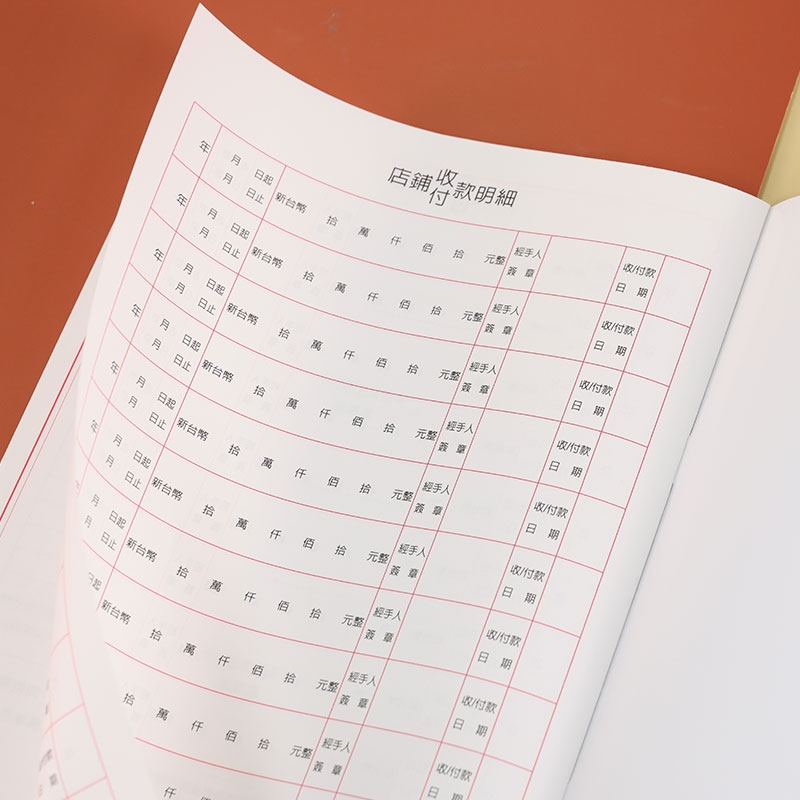 店鋪收付款明細
年 月 日起 新台幣 拾 萬 仟 佰 拾 元整 經手人 收/付款
月 日止 簽章 日期
年 月 日起 新台幣 拾 萬 仟 佰 拾 元整 經手人 收/付款
月 日止 簽章 日期
年 月 日起 新台幣 拾 萬 仟 佰 拾 元整 經手人 收/付款
月 日止 簽章 日期
年 月 日起 新台幣 拾 萬 仟 佰 拾 元整 經手人 收/付款
月 日止 簽章 日期
年 月 日起 新台幣 拾 萬 仟 佰 拾 元整 經手人 收/付款
月 日止 簽章 日期
年 月 日起 新台幣 拾 萬 仟 佰 拾 元整 經手人 收/付款
月 日止 簽章 日期
月 日起 新台幣 拾 萬 仟 佰 拾 元整 經手人 收/付款
月 日止 簽章 日期
日起 新台幣 拾 萬 仟 佰 拾 元整 經手人 收/付款
簽章 日期
拾 萬 仟 佰 拾 元整 經手人 收/付款
簽章 日期
仟 佰